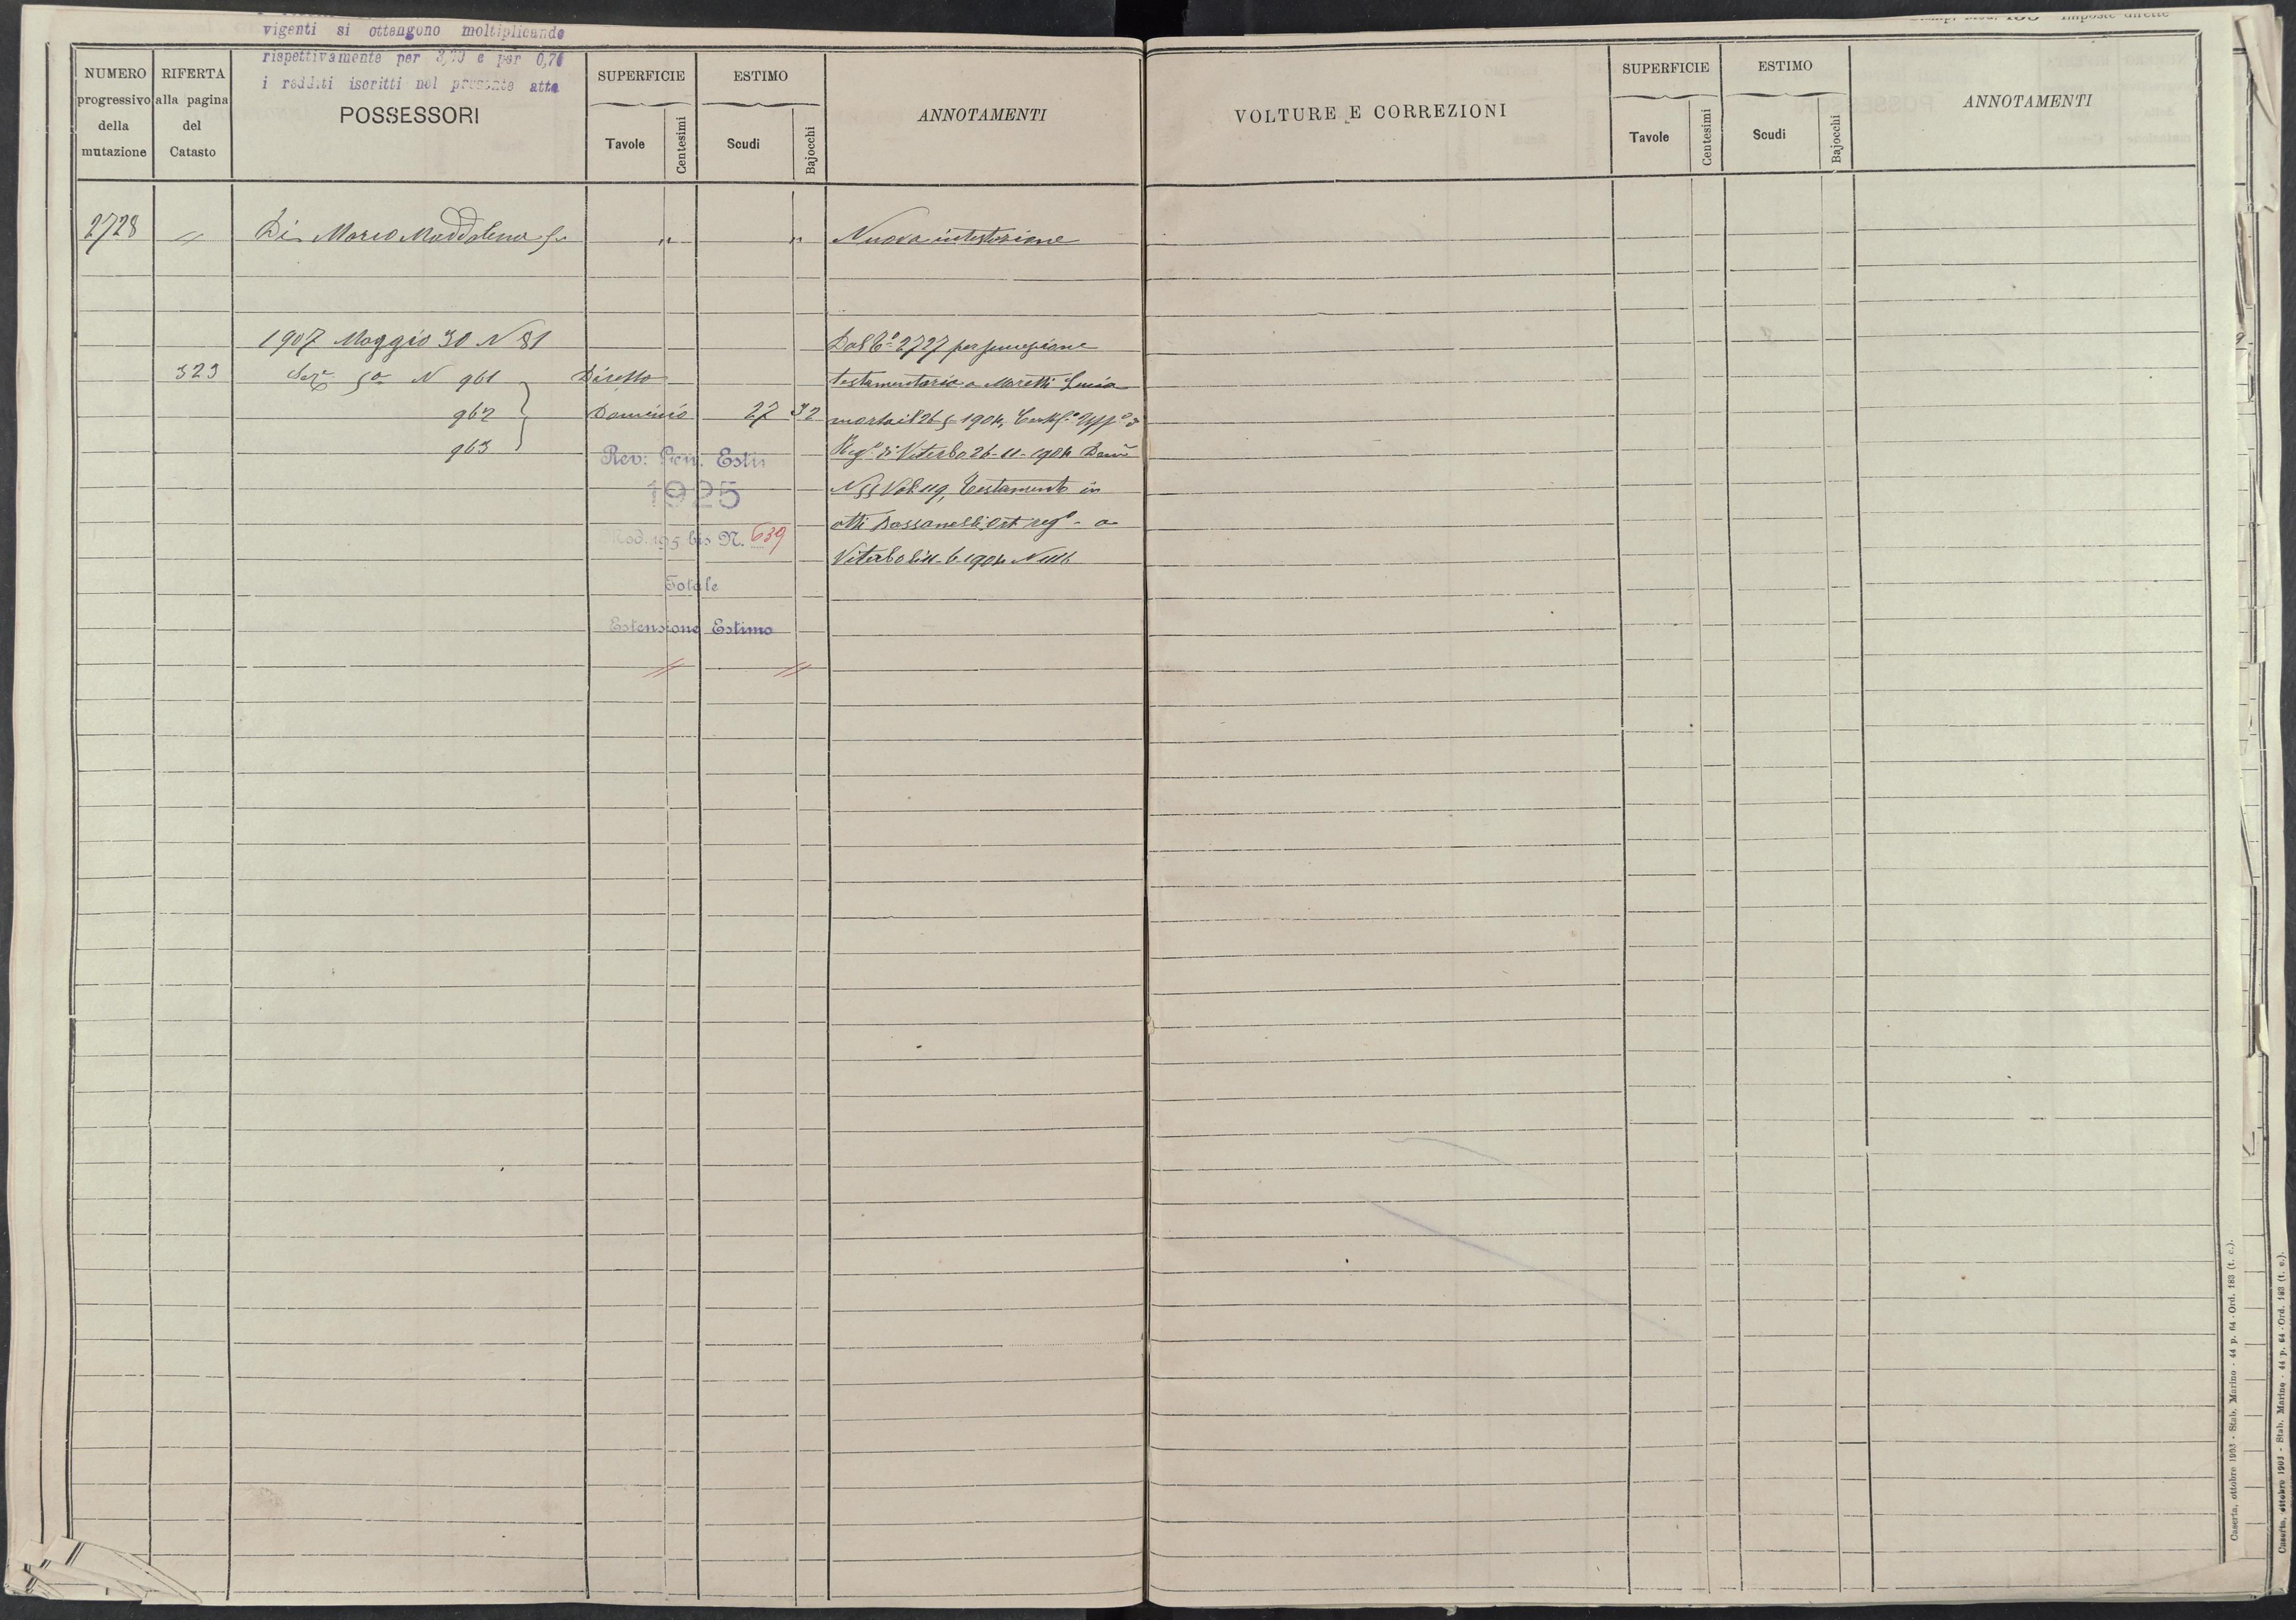 vigenti si ottengono moltiplicando
rispettivamente per 3,70 e per 0,70
i redditi iscritti nel presente atto
NUMERO progressivo della mutazione
RIFERTA alla pagina del Catasto
POSSESSORI
SUPERFICIE
Tavole
Centesimi
ESTIMO
Scudi
Bajocchi
ANNOTAMENTI
VOLTURE E CORREZIONI
SUPERFICIE
Tavole
Centesimi
ESTIMO
Scudi
Bajocchi
ANNOTAMENTI
2728 " Di Marco Maddalena fu " " Nuova intestazione
1907 Maggio 30 N 81 Dal C° 2727 per successione
323 Sez. 5a N 961 Diretto testamentaria a Moretti Lucia
962 Dominio 27 32 morta il 26 5 1904, Certif.° Uff.°
963 Reg° di Viterbo 26-11-1904
Rev: Gen. Esti
1925
N 55 Vol 119, Testamento in
Mod. 195 bis N. 639
atti reg° a
Viterbo 6-1904 N
Totale
Estensione Estimo
" "
Caserta, ottobre 1903 - Stab. Marino - 44 p. 64 - Ord. 183 (t. c.).
Caserta, ottobre 1903 - Stab. Marino - 44 p. 64 - Ord. 183 (t. c.).